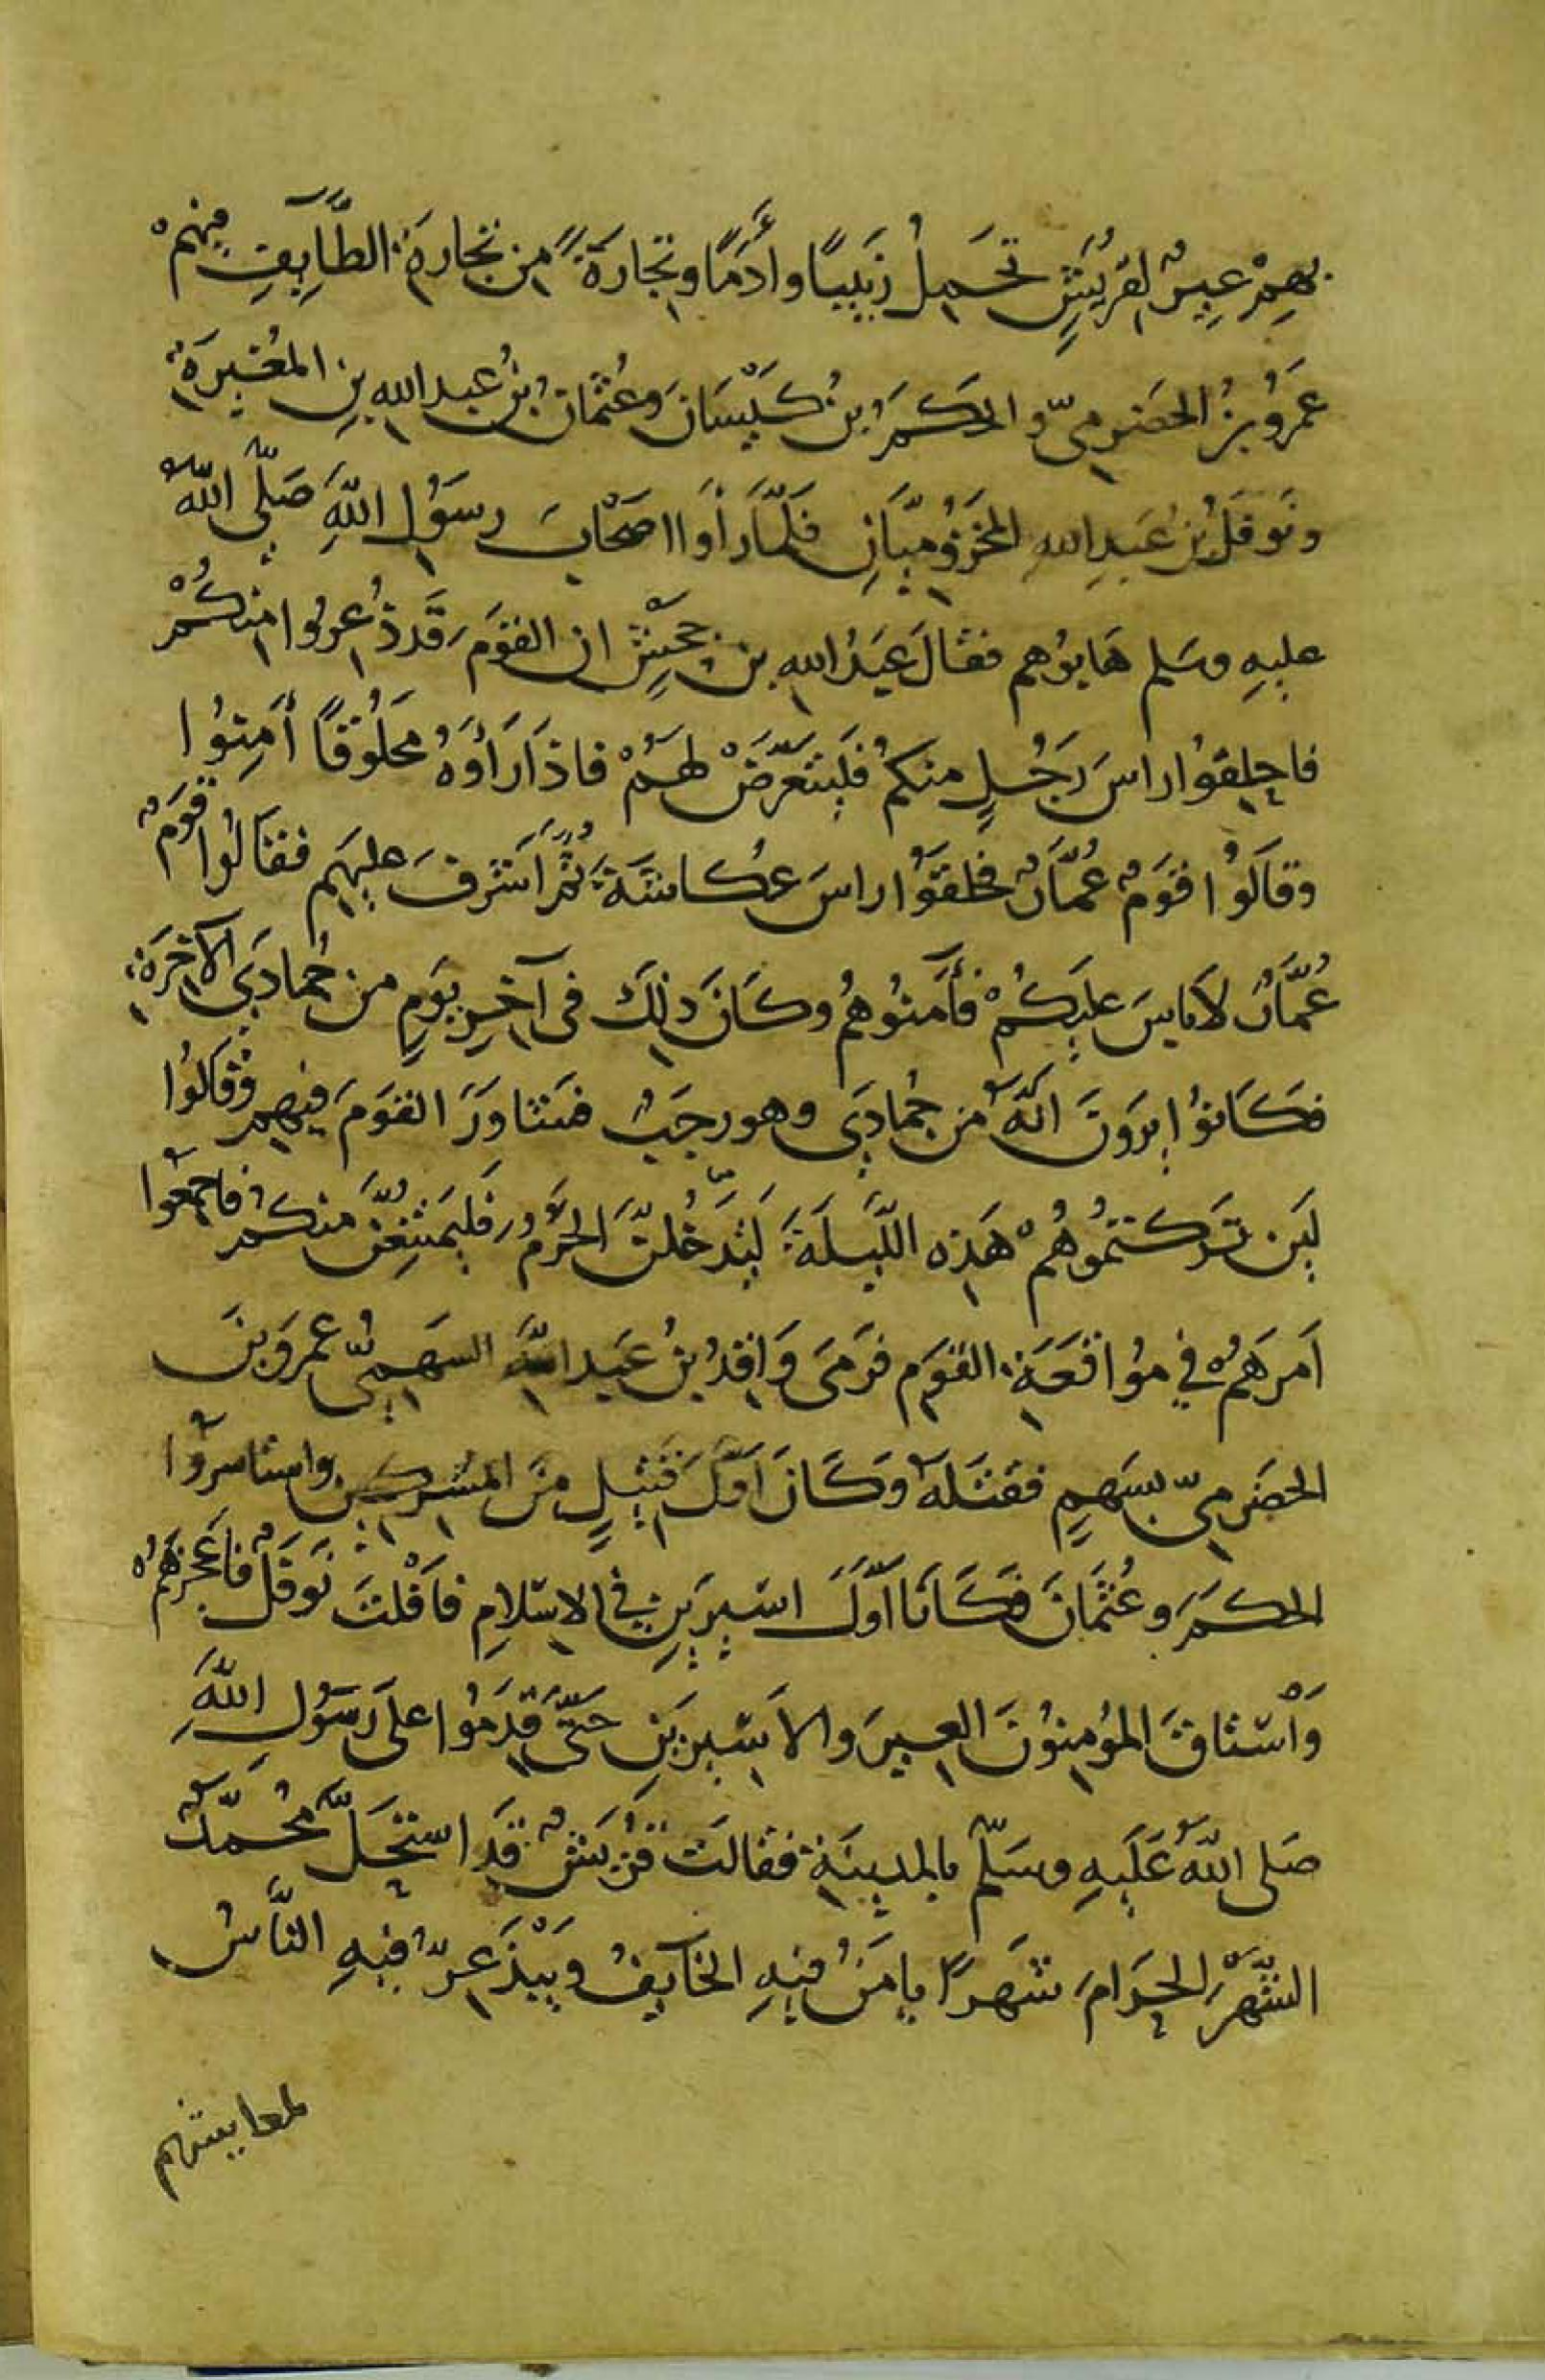 بهِمْ عِيرٌ لقريشٍ تحمِلُ زَبِيبًا وأَدَمًا وتجارَةً من تجارةِ الطَّآيِفِ مِنهمْ
عَمرُو بنُ الحضرمىّ و الحكمُ بنُ كَيْسَانَ وعُثمانُ بنُ عبد اللهِ بنِ المغيرَةِ
ونَوفَلُ بنُ عَبدِ اللهِ المخزُوميَّانِ فلَمَّا رَأَوا اصحَابَ رسوُلِ اللَّهِ صَلَّى اللَّهُ
عليهِ وسَلم هَابوُهم فقالَ عَبدُ اللهِ بن جحشٍ ان القومَ قد ذُعِروا منكُمْ
فاحلِقوُا راسَ رَجُلٍ منكمُ فليَتعَرَّضْ لهَمُْ فاذَا رَأَوْهُ محَلُوقًا أَمِنوُا
وقالَوُا قومٌ عُمَّارٌ فحلقوُا راسَ عكاشَةَ ثُمَّ اَشرفَ عليهَِم فقَالوُا قومٌ
عُمَّارٌ لاَ باسَ عليكُمْ فأَمَنُوهُم وكَانَ ذلِكَ فى آخِرِ يَومٍ من جُمادَى الآخِرَةِ
فكَانوُا يرَوَن انَّهُ من جُمادَى وهو رجَبٌ فتشاوَرَ القوَمُ فيهم وَقالوُا
لَئِن تَركتمُوُهُمْ هَذِه اللَّيلَةَ لَيَدخُلنَّ الحَرَمَ فَليَمتَنِعُنَّ منكمُ فاَجمعَوُا
اَمرَهمُْ في موُاقعَةِ القوَمِ فرَمىَ وَاقِدُ بنُ عبَدِ اللَّهِ السهَمِىُّ عمرَو بنَ
الحضرمِىّ بسهمٍ فقتَلَهُ وَكَانَ اَوَّلَ قتيلٍ منَ المشركينَ واستاسرَوُا
الحكمَ وعُثمَانَ فكَانَا اَوَّلَ اسَيرَينِ في الاسلامِ فاَفْلتَ نَوفَلٌ فاَعجزَهَمُْ
وَاْستاقَ المؤُمِنوُنَ العيرَ والاَسيرينِ حتىَّ قَدِموُا علىَ رَسوُلِ اللَّهِ
صَلى اللَّهُ عَلَيهِ وسَلّم بالمدِينَةِ فقالَت قرُيشٌ قد استحَلَّ محُمدٌّ
الشَّهرَ الحرَامَ شهَرًا يامَنُ فيهِ الخايِفُ ويَبْذَعِرُّ فيهِ النَّاسُ
لمعايشهم